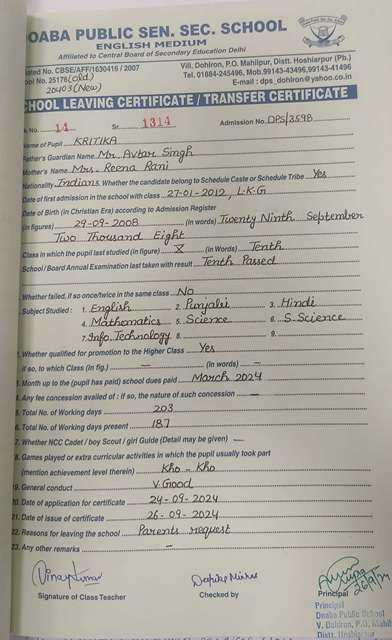 OABA PUBLIC SEN. SEC. SCHOOL
ENGLISH MEDIUM
Affiliated to Central Board of Secondary Education Delhi
ated No. CBSE/AFF/1630416 / 2007
Vill. Dohlron, P.O. Mahilpur, Distt. Hoshiarpur (Pb.)
ool No. 25176 (old)
Tel. 01884-245496, Mob.99143-43496,99143-41496
20403 (New)
E-mail : dps_dohlron@yahoo.co.in
CHOOL LEAVING CERTIFICATE / TRANSFER CERTIFICATE
k No. 14 Sr. 1314 Admission No. DPS/3598
Name of Pupil KRITIKA
Father's Guardian Name Mr. Avtar Singh
Mother's Name Mrs. Reena Rani
Nationality Indians. Whether the candidate belong to Schedule Caste or Schedule Tribe Yes
Date of first admission in the school with class 27-01-2012, L.K.G
Date of Birth (in Christian Era) according to Admission Register
(in figures) 29-09-2008 (in words) Twenty Ninth September
Two Thousand Eight
Class in which the pupil last studied (in figure) X (in Words) Tenth
School / Board Annual Examination last taken with result Tenth Passed
Whether failed, if so once/twice in the same class No
Subject Studied : 1. English 2. Punjabi 3. Hindi
4. Mathematics 5. Science 6. S. Science
7. Info. Technology 8. 9.
Whether qualified for promotion to the Higher Class Yes
if so, to which Class (In fig.) – (in words) –
Month up to the (pupil has paid) school dues paid March 2024
Any fee concession availed of : if so, the nature of such concession –
5. Total No. of Working days 203
6. Total No. of Working days present 187
7. Whether NCC Cadet / boy Scout / girl Guide (Detail may be given) –
8. Games played or extra curricular activities in which the pupil usually took part
(mention achievement level therein) Kho - Kho
19. General conduct V. Good
20. Date of application for certificate 24-09-2024
21. Date of issue of certificate 26-09-2024
22. Reasons for leaving the school Parents request
23. Any other remarks –
Signature of Class Teacher Checked by Principal
Principal
Doaba Public School
V. Dohlron, P.O. Mahil
Distt. Hoshiarpur